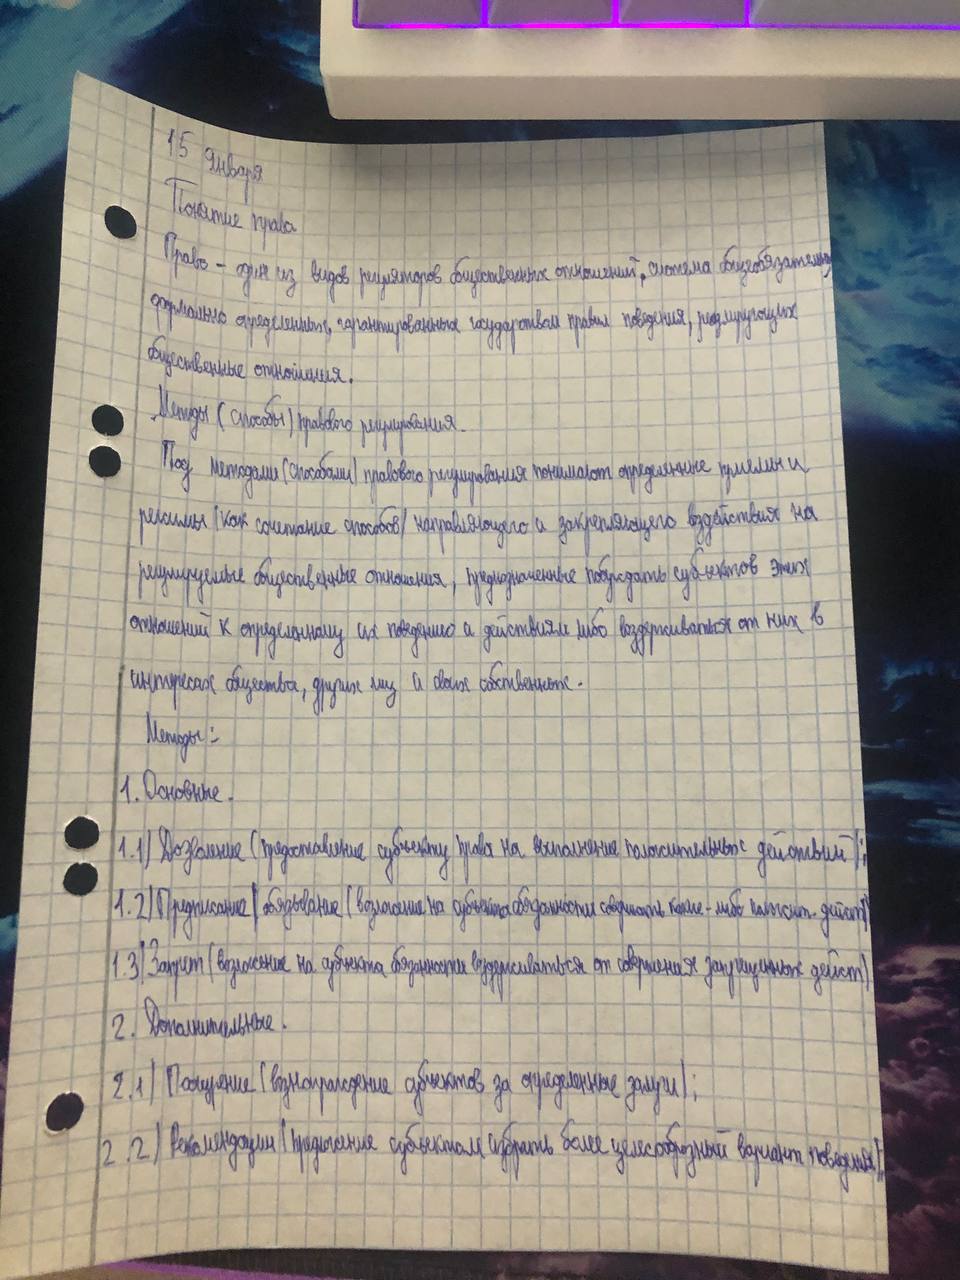 15 января
Понятие права
Право - один из видов регуляторов общественных отношений, система общеобязательн
формально определенных, гарантированных государством правил поведения, регулирующих
общественные отношения.
Методы (способы) правового регулирования.
Под методами (способами) правового регулирования понимают определенные приемы и
режимы (как сочетание способов) направляющего и закрепляющего воздействия на
регулируемые общественные отношения, предназначенные побуждать субъектов этих
отношений к определенному их поведению и действиям либо воздерживаться от них в
интересах общества, других лиц и своих собственных.
Методы:
1. Основные.
1.1) Дозволение (предоставление субъекту права на выполнение положительных действий);
1.2) Предписание / обязывание (возложение на субъекта обязанности совершать какие-либо положит. дейст)
1.3) Запрет (возложение на субъекта обязанности воздерживаться от совершения запрещенных дейст)
2. Дополнительные.
2.1) Поощрение (вознаграждение субъектов за определенные заслуги);
2.2) Рекомендации (предложение субъектам избрать более целесообразный вариант поведения);